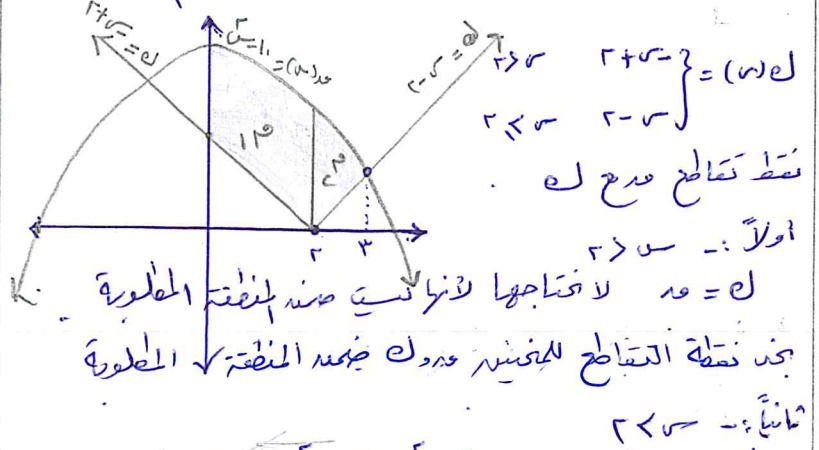 ك = -س+٢
ق(س) = ١٠-س^٢
ك = س-٢
م١
م٢
٢ ٣
ك(س) = { -س+٢ س<٢
س-٢ س≥٢
نقط تقاطع ق مع ك .
أولاً :- س<٢
ك = ق لا نحتاجها لأنها ليست ضمن المنطقة المطلوبة .
نجد نقطة التقاطع للمنحنيين ق و ك ضمن المنطقة المطلوبة
ثانياً :- س>٢